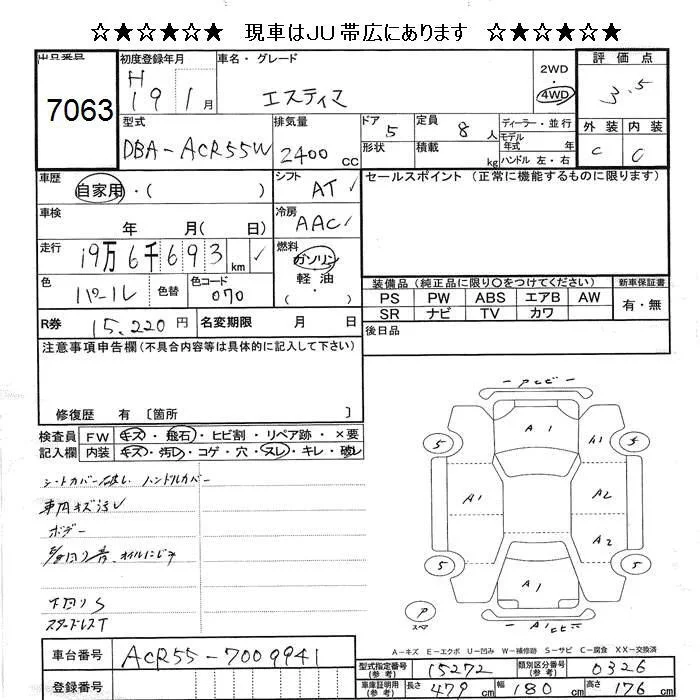 ☆★☆★☆★☆ 現車はJU帯広にあります ☆★☆★☆★☆
出品番号 7063
初度登録年月 H 19 1月
車名・グレード エスティマ
2WD・4WD
評価点 3.5
外装 C 内装 C
型式 DBA-ACR55W
排気量 2400 cc
ドア 5 形状
定員 8人 積載 kg
ディーラー・並行
モデル年式 年
ハンドル 左・右
車歴 自家用・( )
シフト AT
セールスポイント (正常に機能するものに限ります)
車検 年 月( 日)
冷房 AAC
走行 19万6千693 km
燃料 ガソリン 軽油 ・
色 パール 色替 色コード 070
装備品(純正品に限り○をつけてください) 新車保証書
PS PW ABS エアB AW 有・無
SR ナビ TV カワ
R券 15,220円 名変期限 月 日
後日品
注意事項申告欄(不具合内容等は具体的に記入して下さい)
修復歴 有 〔箇所 〕
検査員記入欄
FW キズ・飛石・ヒビ割・リペア跡・×要
内装 キズ・汚レ・コゲ・穴・スレ・キレ・破レ
シートカバー破レ ハンドルカバー
車内キズ汚レ
ボデー
下回りS
スタッドレスT
A1 A1 A2 A2 A1
5 5 5
A-キズ E-エクボ U-凹み W-補修跡 S-サビ C-腐食 XX-交換済
車台番号 ACR55-7009941
登録番号
型式指定番号(参考) 15272 類別区分番号(参考) 0326
車庫証明用(参考) 長さ 479cm 幅 180cm 高さ 176cm